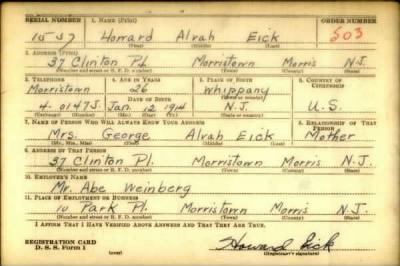 SERIAL NUMBER 1. NAME (Print) ORDER NUMBER
1537 Howard Alvah Eick 503
(First) (Middle) (Last)
2. ADDRESS (Print)
37 Clinton Pl. Morristown Morris N.J.
(Number and street or R. F. D. number) (Town) (County) (State)
3. TELEPHONE 4. AGE IN YEARS 5. PLACE OF BIRTH 6. COUNTRY OF CITIZENSHIP
Morristown 26 Whippany
DATE OF BIRTH (Town or county)
4-0147J Jan. 12 1914 N.J. U.S.
(Exchange) (Number) (Mo.) (Day) (Yr.) (State or country)
7. NAME OF PERSON WHO WILL ALWAYS KNOW YOUR ADDRESS 8. RELATIONSHIP OF THAT PERSON
Mrs. George Alvah Eick Mother
(Mr., Mrs., Miss) (First) (Middle) (Last)
9. ADDRESS OF THAT PERSON
37 Clinton Pl. Morristown Morris N.J.
(Number and street or R. F. D. number) (Town) (County) (State)
10. EMPLOYER'S NAME
Mr. Abe Weinberg
11. PLACE OF EMPLOYMENT OR BUSINESS
10 Park Pl. Morristown Morris N.J.
(Number and street or R. F. D. number) (Town) (County) (State)
I AFFIRM THAT I HAVE VERIFIED ABOVE ANSWERS AND THAT THEY ARE TRUE.
REGISTRATION CARD
D. S. S. Form 1 Howard Eick
(over) (Registrant's signature)